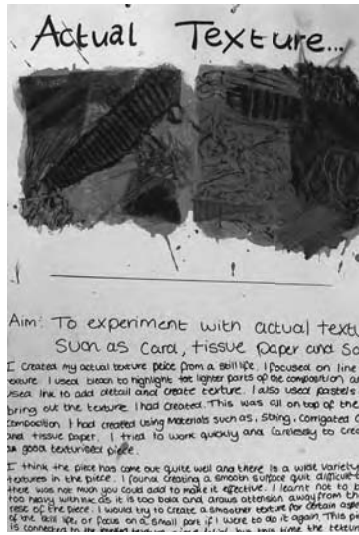 Actual Texture...
Aim: To experiment with actual textu
Such as Card, tissue paper and So
I created my actual texture peice from a still life. I focused on line
texture I used bleach to highlight the lighter parts of the composition an
used ink to add detail and create texture. I also used pastels
bring out the texture I had created. This was all on top of the
composition I had created using Materials such as, String, Corrigated C
and tissue paper. I tried to work quickly and Carelessly to creat
a good texturised piece.
I think the piece has come out quite well and there is a wide variety
textures in the piece. I found creating a smooth surface quit difficult
there was not much you could add to make it effective. I learnt not to b
too heavy with ink as it is too bold and draws attension away from th
rest of the piece. I would try to create a smoother texture for certain aspe
of the still life, or focus on a small part if I were to do it again. This pie
is connected to the
this time the textur